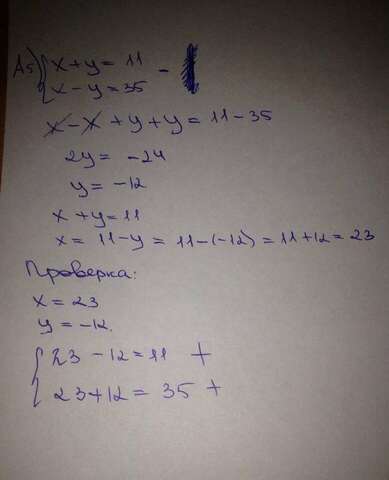 А5) { x + y = 11 -
x - y = 35
x - x + y + y = 11 - 35
2y = -24
y = -12
x + y = 11
x = 11 - y = 11 - (-12) = 11 + 12 = 23
Проверка:
x = 23
y = -12.
{ 23 - 12 = 11 +
23 + 12 = 35 +